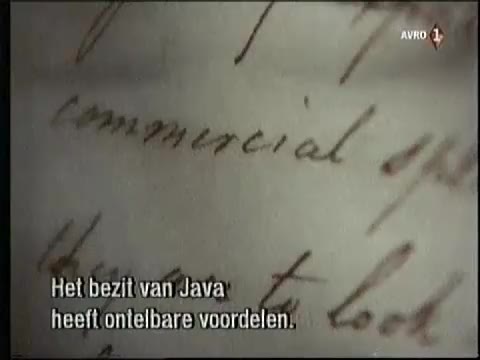 AVRO 1
commercial
to look
Het bezit van Java
heeft ontelbare voordelen.